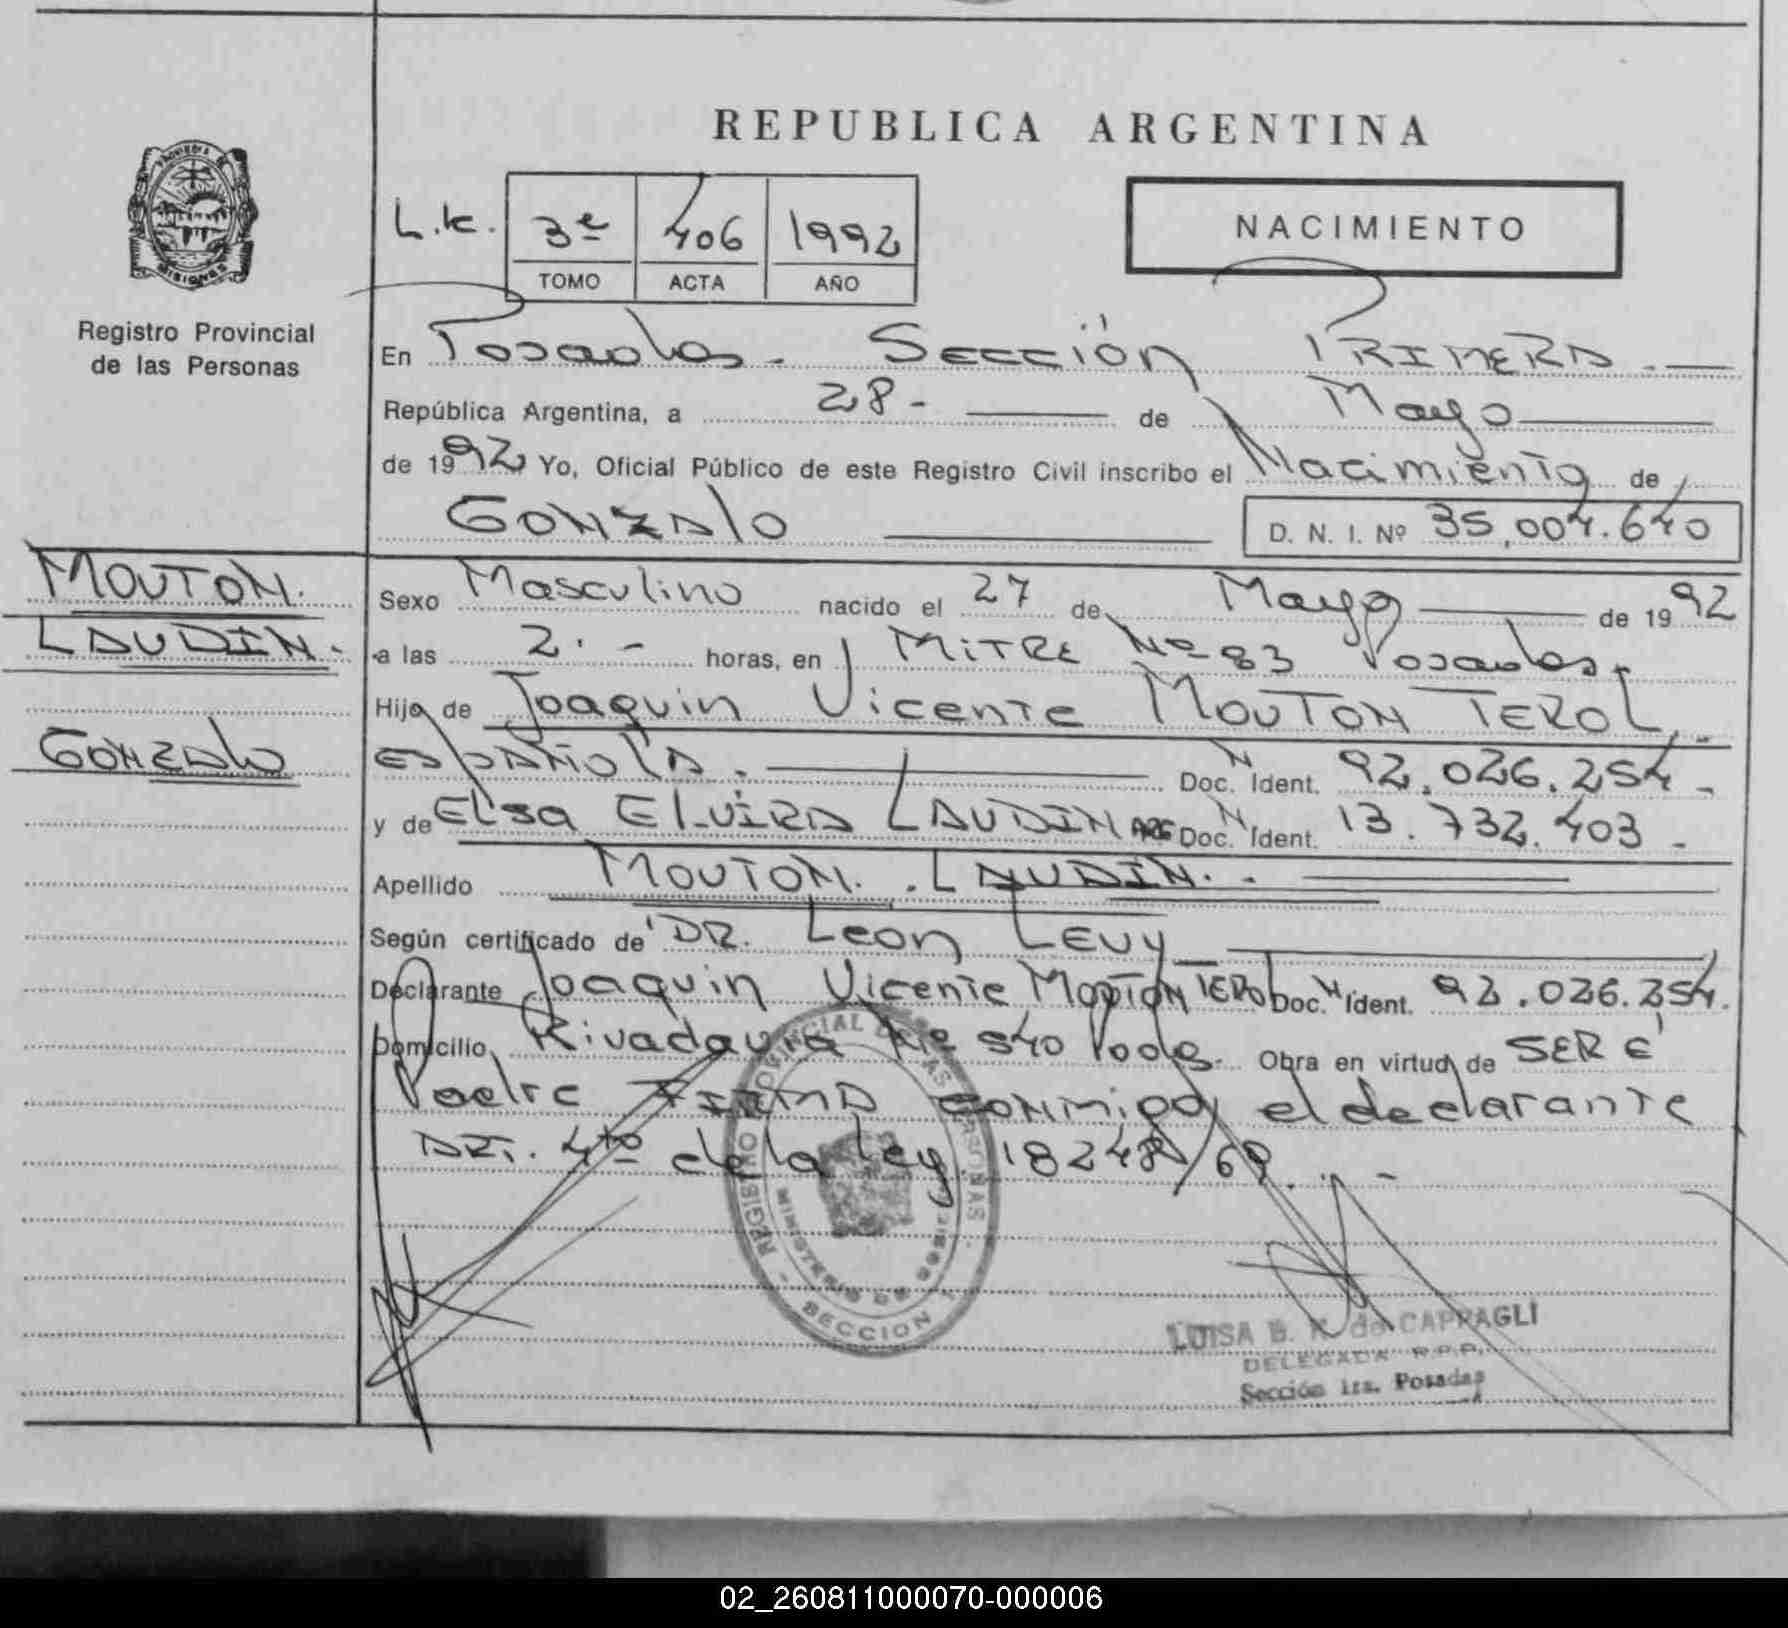 REPUBLICA ARGENTINA
PROVINCIA DE
MISIONES
Registro Provincial
de las Personas
L.K.
3º 406 1992
TOMO ACTA AÑO
NACIMIENTO
En Posadas - Sección PRIMERA. —
República Argentina, a 28 - — de Mayo —
de 1992 Yo, Oficial Público de este Registro Civil inscribo el Nacimiento de
GONZALO — D. N. I. Nº 35.004.640
MOUTON.
LAUDIN.
GONZALO
Sexo Masculino nacido el 27 de Mayo — de 1992
a las 2. - horas, en MITRE Nº 83 Posadas.
Hijo de Joaquin Vicente MOUTON TEROL
ESPAÑOLA. — Doc. N Ident. 92.026.254 -
y de ELSA ELVIRA LAUDIN ARG Doc. N Ident. 13.732.403 -
Apellido MOUTON. LAUDIN. -
Según certificado de DR. Leon LEVY —
Declarante Joaquin Vicente MOUTON TEROL Doc. N Ident. 92.026.254.
Domicilio Rivadavia Nº 540 Pdas. Obra en virtud de SER é
Padre FIRMA CONMigo el declarante
ART. 4to de la ley 18248/69. -
REGISTRO PROVINCIAL DE LAS PERSONAS
MINISTERIO DE GOBIERNO
SECCION 1
LUISA B. K. de CAPPAGLI
DELEGADA R.P.P.
Sección 1ra. Posadas
02_260811000070-000006